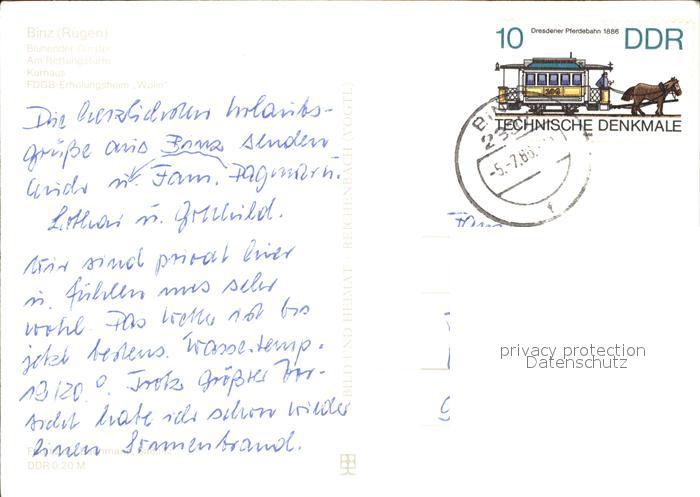 Binz (Rügen)
Blühender Ginster
Am Rettungsturm
Kurhaus
FDGB-Erholungsheim „Wolin“
Die herzlichsten Urlaubs-
grüße aus Binz senden
u. Fam. Dagmar u.
Lothar u. Gotthild.
Wir sind privat hier
u. fühlen uns sehr
wohl. Das Wetter ist bis
jetzt bestens. Wassertemp.
19/20 °. Trotz größter Vor-
sicht habe ich schon wieder
einen Sonnenbrand.
DDR 0,20 M
BILD UND HEIMAT · REICHENBACH (VOGTL)
Dresdener Pferdebahn 1886
10 DDR
TECHNISCHE DENKMALE
-5.-7.86
Fam.
privacy protection
Datenschutz